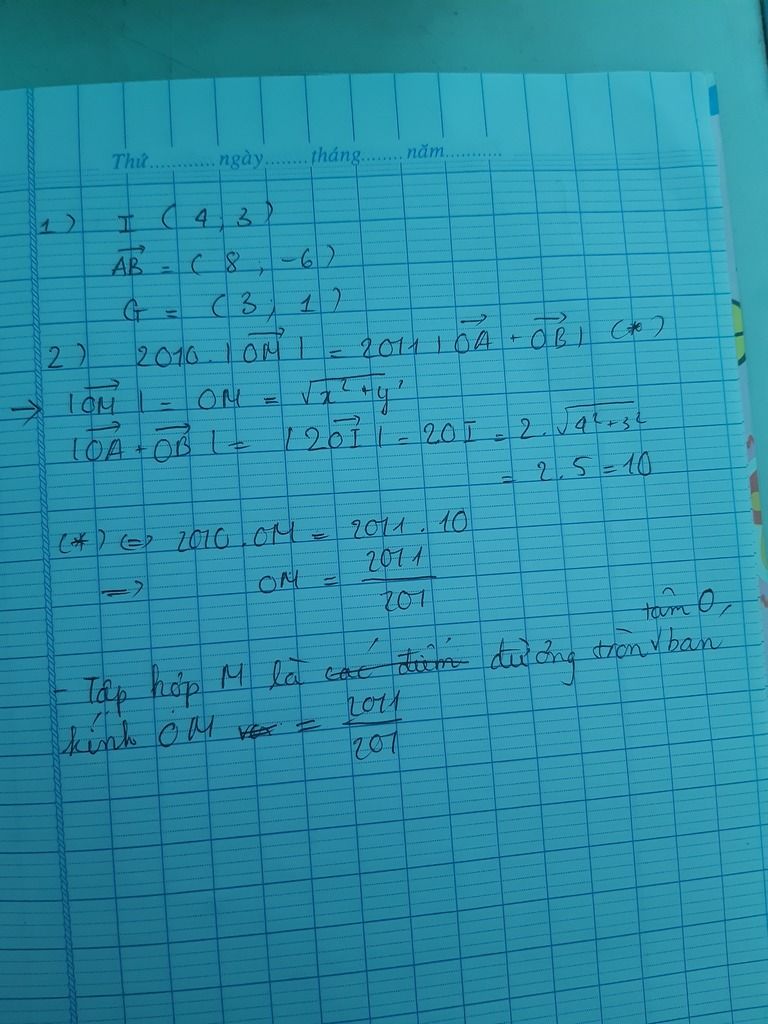 Thứ............ngày........tháng........năm...........
1) I (4, 3)
AB = (8, -6)
G = (3, 1)
2) 2010.|OM| = 2011|OA + OB| (*)
→ |OM| = OM = √x²+y²
|OA + OB| = |2OI| = 2OI = 2.√4²+3²
= 2.5 = 10
(*) ⇔ 2010.OM = 2011.10
=> OM = 2011/201
tâm O,
- Tập hợp M là các điểm đường tròn ban
kính OM = 2011/201